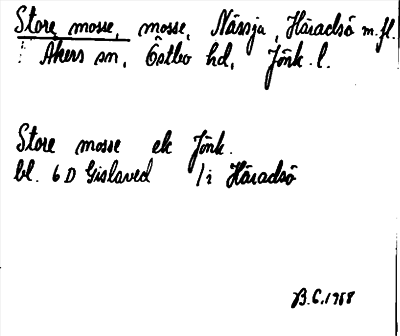 Store mosse, mosse, Nässja, Häradsö m.fl.
i Åkers sn, Östbo hd, Jönk. l.
Store mosse ek Jönk.
bl. 6 D Gislaved 1 i Häradsö
B.C. 1958